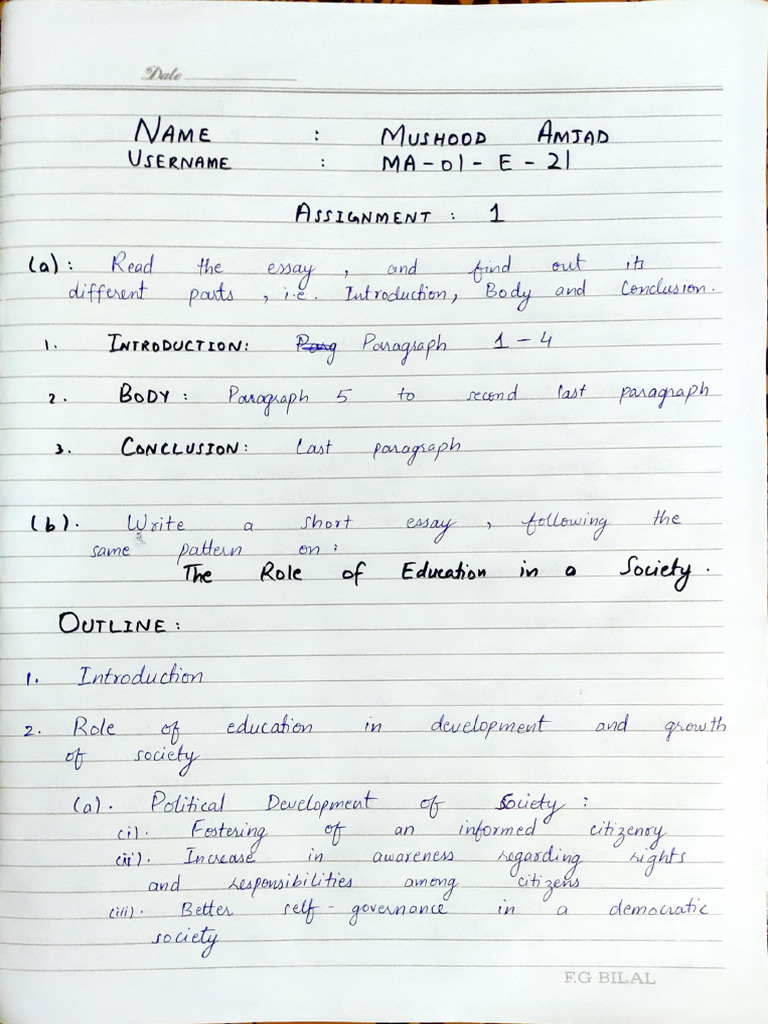 Date
NAME : MUSHOOD AMJAD
USERNAME : MA-01-E-21
ASSIGNMENT : 1
(a): Read the essay, and find out its
different parts, i.e. Introduction, Body and Conclusion.
1. INTRODUCTION: Paragraph 1-4
2. BODY: Paragraph 5 to second last paragraph
3. CONCLUSION: Last paragraph
(b). Write a short essay, following the
same pattern on:
The Role of Education in a Society.
OUTLINE:
1. Introduction
2. Role of education in development and growth
of society
(a). Political Development of Society:
(i). Fostering of an informed citizenry
(ii). Increase in awareness regarding rights
and responsibilities among citizens
(iii). Better self-governance in a democratic
society
F.G BILAL